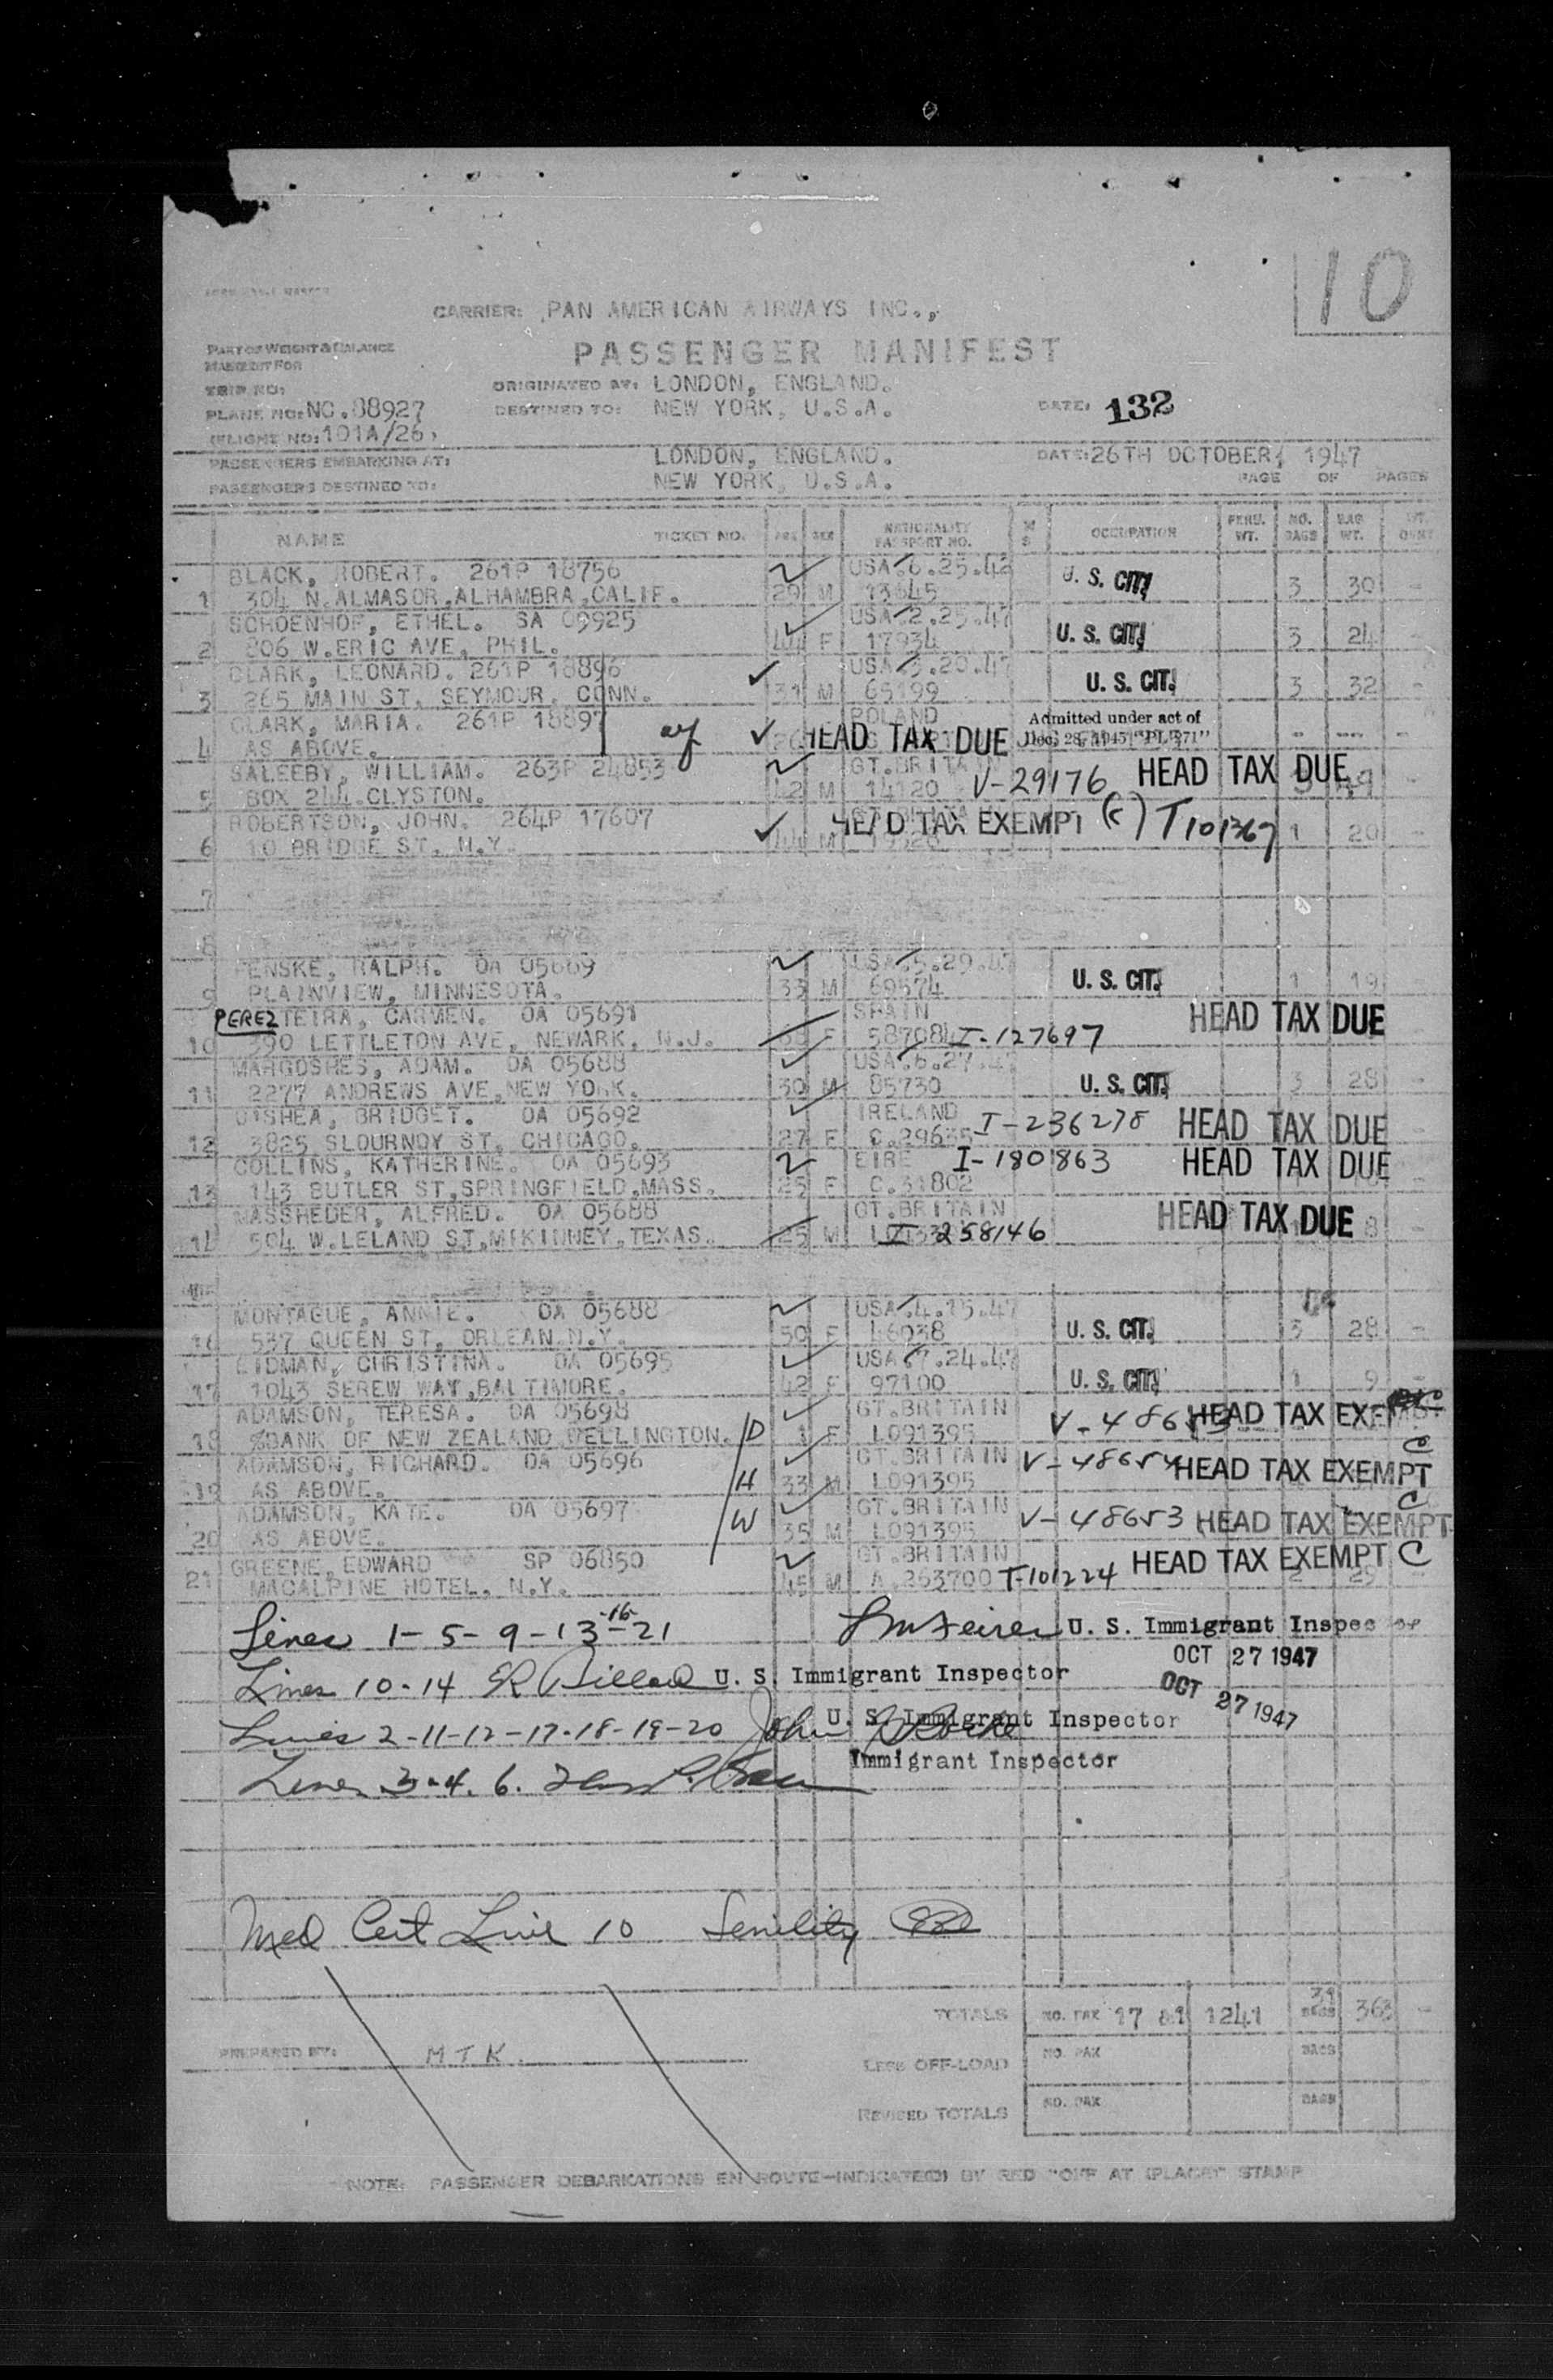 10
CARRIER: PAN AMERICAN AIRWAYS INC.,
PART OF WEIGHT & BALANCE
MANIFEST FOR
PASSENGER MANIFEST
TRIP NO:
ORIGINATED AT: LONDON, ENGLAND.
PLANE NO: NC.88927
DESTINED TO: NEW YORK, U.S.A.
DATE: 132
(FLIGHT NO: 101A/26)
PASSENGERS EMBARKING AT: LONDON, ENGLAND. DATE: 26TH OCTOBER, 1947
PASSENGERS DESTINED TO: NEW YORK, U.S.A. PAGE OF PAGES
NAME TICKET NO. AGE SEX NATIONALITY PASSPORT NO. M S OCCUPATION PERS. WT. NO. BAGS BAG WT.
BLACK, ROBERT. 261P 18756 USA.6.25.42 U. S. CIT.
1 304 N.ALMASOR,ALHAMBRA,CALIF. 29 M 13645 3 30 -
SCHOENHOF, ETHEL. SA 09925 USA.2.25.47 U. S. CIT.
2 806 W.ERIC AVE, PHIL. 44 F 17934 3 24 -
CLARK, LEONARD. 261P 18896 USA.3.20.47 U. S. CIT.
3 265 MAIN ST, SEYMOUR, CONN. 31 M 65199 3 32 -
CLARK, MARIA. 261P 18897 POLAND Admitted under act of
4 AS ABOVE. 26 HEAD TAX DUE Dec. 28, 1945 "PL 271"
SALEEBY, WILLIAM. 263P 24853 GT.BRITAIN HEAD TAX DUE
5 BOX 244.CLYSTON. 42 M 14120 V-29176
ROBERTSON, JOHN. 264P 17607 HEAD TAX EXEMPT (C) T101367
6 10 BRIDGE ST, N.Y. 44 M 1 20
7
8
FENSKE, RALPH. OA 05669 USA.5.29.47 U. S. CIT.
9 PLAINVIEW, MINNESOTA. 33 M 69574 1 19
PEREZ TEIRA, CARMEN. OA 05691 SPAIN HEAD TAX DUE
10 390 LETTLETON AVE, NEWARK, N.J. F I-127697
MARGOSHES, ADAM. OA 05688 USA.6.27.47 U. S. CIT.
11 2277 ANDREWS AVE,NEW YORK. 30 M 85730 3 28 -
O'SHEA, BRIDGET. OA 05692 IRELAND I-236278 HEAD TAX DUE
12 3825 SLOURNOY ST, CHICAGO. 27 F
COLLINS, KATHERINE. OA 05693 EIRE I-1801863 HEAD TAX DUE
13 143 BUTLER ST,SPRINGFIELD,MASS. 25 F C.31802
MASSHEDER, ALFRED. OA 05688 GT.BRITAIN HEAD TAX DUE
14 504 W.LELAND ST,MCKINNEY,TEXAS. 25 M I 258146 8
MONTAGUE, ANNIE. OA 05688 USA.4.15.47
16 537 QUEEN ST, ORLEAN.N.Y. 50 F 46038 U. S. CIT. 3 28 -
EIDMAN, CHRISTINA. OA 05695 USA.7.24.47
17 1043 SEREW WAY,BALTIMORE. 42 F 97100 U. S. CIT. 1 9 -
ADAMSON, TERESA. OA 05698 GT.BRITAIN HEAD TAX EXEMPT
18 %BANK OF NEW ZEALAND,WELLINGTON. D 1 F L091395
ADAMSON, RICHARD. OA 05696 GT.BRITAIN V-48654 HEAD TAX EXEMPT C
19 AS ABOVE. H 33 M L091395
ADAMSON, KATE. OA 05697 GT.BRITAIN V-48653 HEAD TAX EXEMPT C
20 AS ABOVE. W 35 M L091395
GREENE, EDWARD SP 06850 GT.BRITAIN HEAD TAX EXEMPT C
21 MACALPINE HOTEL, N.Y. 45 M A.253700 T-101224 2 29
Lines 1-5-9-13-16-21 U. S. Immigrant Inspector
OCT 27 1947
Lines 10-14 U. S. Immigrant Inspector
OCT 27 1947
Lines 2-11-12-17-18-19-20 John U. S. Immigrant Inspector
Lines 3-4. 6. Immigrant Inspector
Med Cert Line 10 Senility
TOTALS NO. PAX 17 &1 1241 BAGS 363 -
PREPARED BY: MTK.
LESS OFF-LOAD NO. PAX BAGS
REVISED TOTALS NO. PAX BAGS
NOTE: PASSENGER DEBARKATIONS EN ROUTE-INDICATED BY RED "OFF AT (PLACE)" STAMP